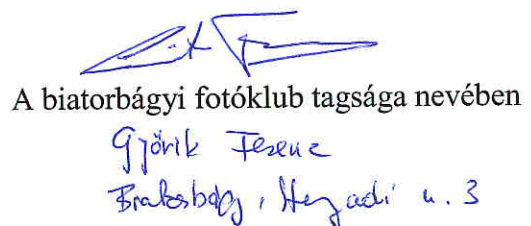 A biatorbágyi fotóklub tagsága nevében
Győrik Ferenc
Biatorbágy, u. 3